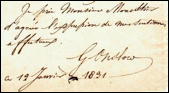 Je prie Monsieur
d'agréer l'expression de mes sentimens
affectueux
G Onslow
a 13 Janvier 1831